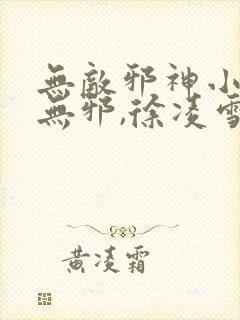 無敵邪神小
無邪,徐凌雪
黄凌霜